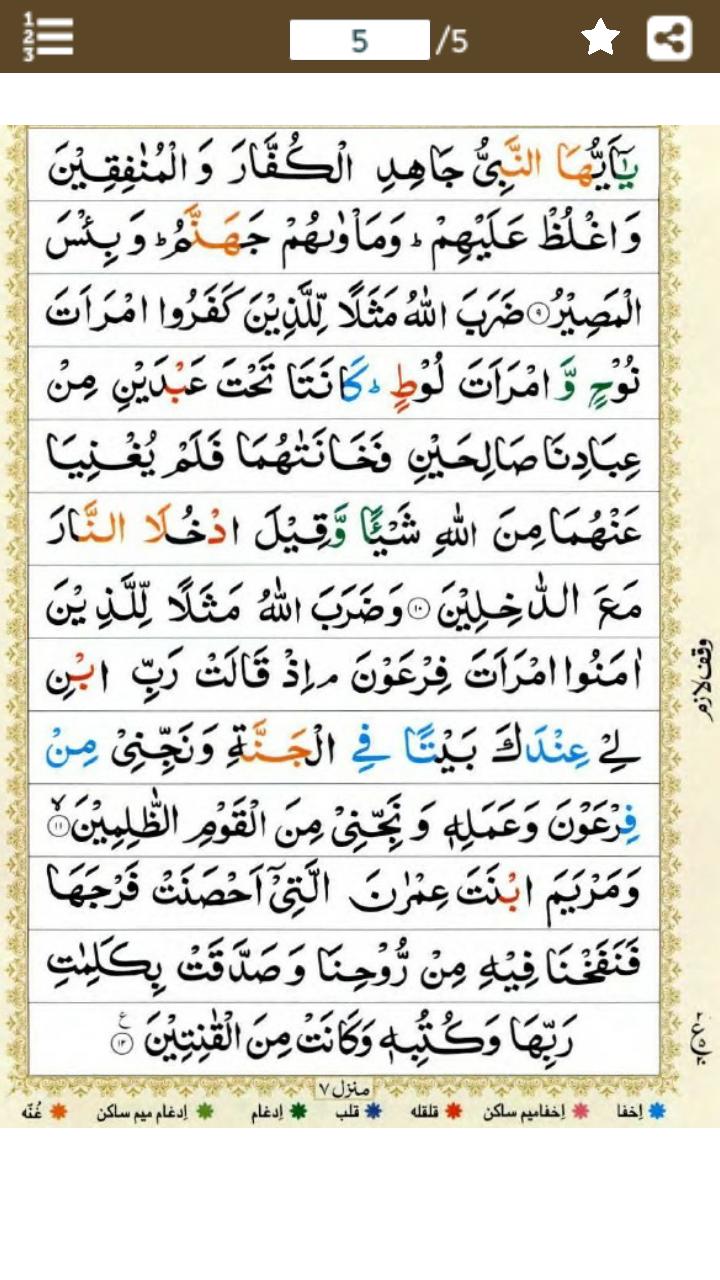 1
2
3
5 /5
يٰۤاَيُّهَا النَّبِىُّ جَاهِدِ الْكُفَّارَ وَ الْمُنٰفِقِيْنَ
وَ اغْلُظْ عَلَيْهِمْ ؕ وَمَاْوٰىهُمْ جَهَنَّمُ ؕ وَ بِئْسَ
الْمَصِيْرُ ۹ ضَرَبَ اللّٰهُ مَثَلًا لِّلَّذِيْنَ كَفَرُوا امْرَاَتَ
نُوْحٍ وَّ امْرَاَتَ لُوْطٍ ؕ كَانَتَا تَحْتَ عَبْدَيْنِ مِنْ
عِبَادِنَا صَالِحَيْنِ فَخَانَتٰهُمَا فَلَمْ يُغْنِيَا
عَنْهُمَا مِنَ اللّٰهِ شَيْـًٔا وَّقِيْلَ ادْخُلَا النَّارَ
مَعَ الدّٰخِلِيْنَ ۱۰ وَضَرَبَ اللّٰهُ مَثَلًا لِّلَّذِيْنَ
اٰمَنُوا امْرَاَتَ فِرْعَوْنَ ۘ اِذْ قَالَتْ رَبِّ ابْنِ
لِىْ عِنْدَكَ بَيْتًا فِى الْجَنَّةِ وَنَجِّنِىْ مِنْ
فِرْعَوْنَ وَعَمَلِهٖ وَ نَجِّنِىْ مِنَ الْقَوْمِ الظّٰلِمِيْنَ ۙ ۱۱
وَمَرْيَمَ ابْنَتَ عِمْرٰنَ الَّتِىْۤ اَحْصَنَتْ فَرْجَهَا
فَنَفَخْنَا فِيْهِ مِنْ رُّوْحِنَا وَ صَدَّقَتْ بِكَلِمٰتِ
رَبِّهَا وَكُتُبِهٖ وَكَانَتْ مِنَ الْقٰنِتِيْنَ ۱۲ ع
وقف لازم
منزل ۷
اِخفا اِخفامیم ساکن قلقله قلب اِدغام اِدغام میم ساکن غُنّه